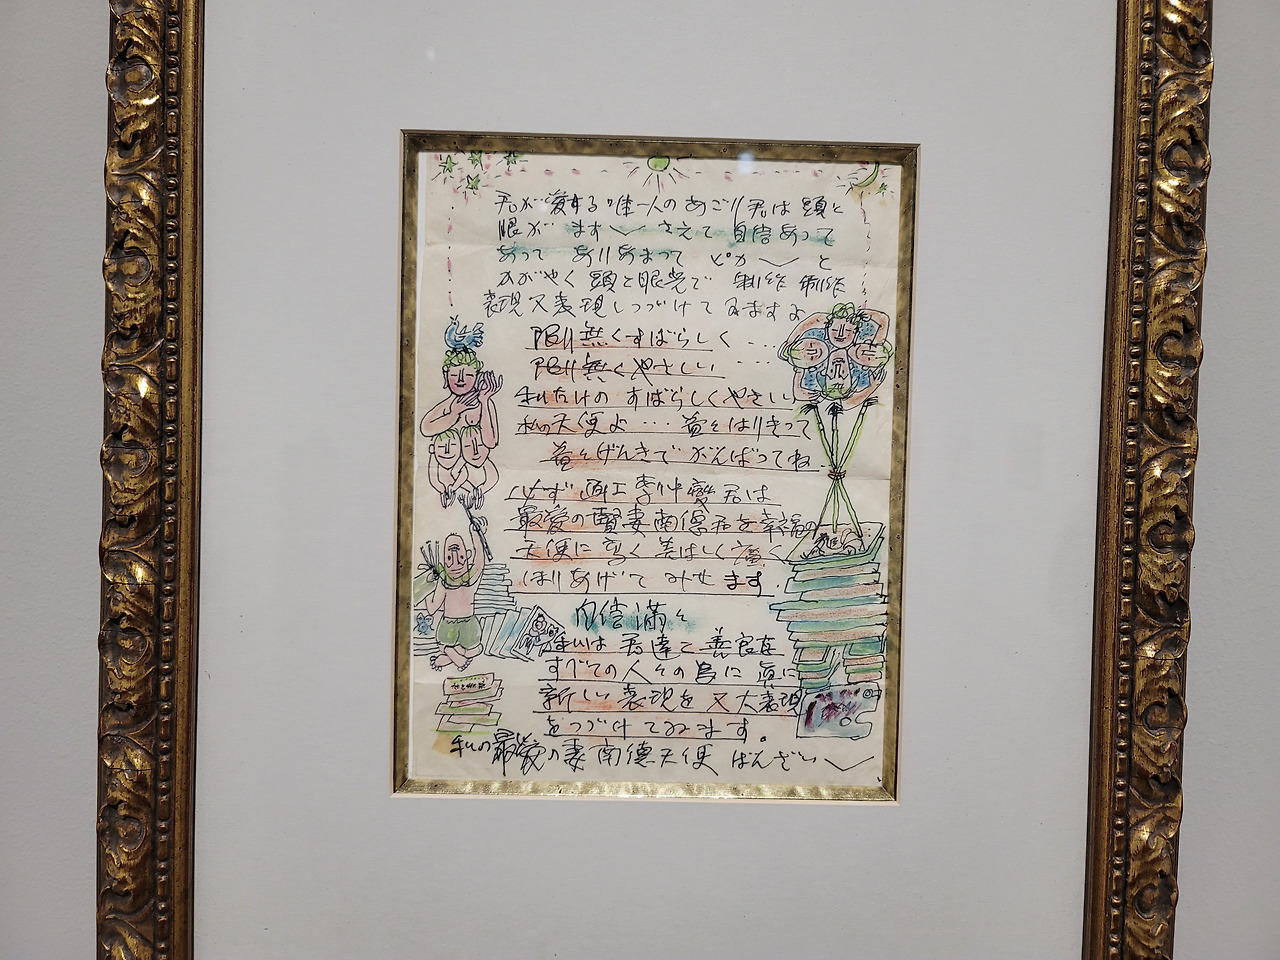 君が愛する唯一人のあごり君は頭と
眼が ます〱 さえて 自信あって
あって ありあまって ピカ〱 と
かがやく 頭と眼光で 制作 制作
表現又表現しつづけてみますよ
限り無くすばらしく ...
限り無くやさしい ...
私だけの すばらしくやさしい
私の天使よ ... 益々はりきって
益々げんきで がんばってね.
必ず 画工李仲燮君は
最愛の賢妻南德君を幸福の
天使に 高く 美しく 広く
ほりあげて みせ ます.
自信満々
私は 君達と 善良な
すべての人々の為に 真に
新しい 表現を 又大表現
をつづけてみます。
私の最愛の妻南德天使 ばんざい〱